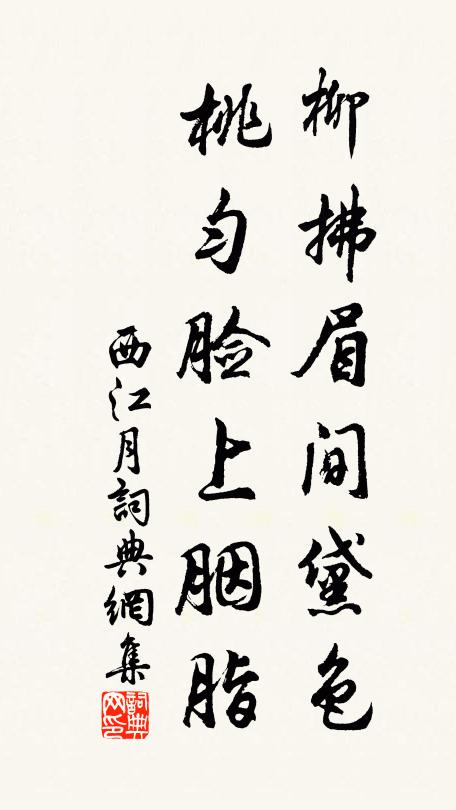 柳拂眉间黛色
桃匀脸上胭脂
西江月詞典網集
詞典网印